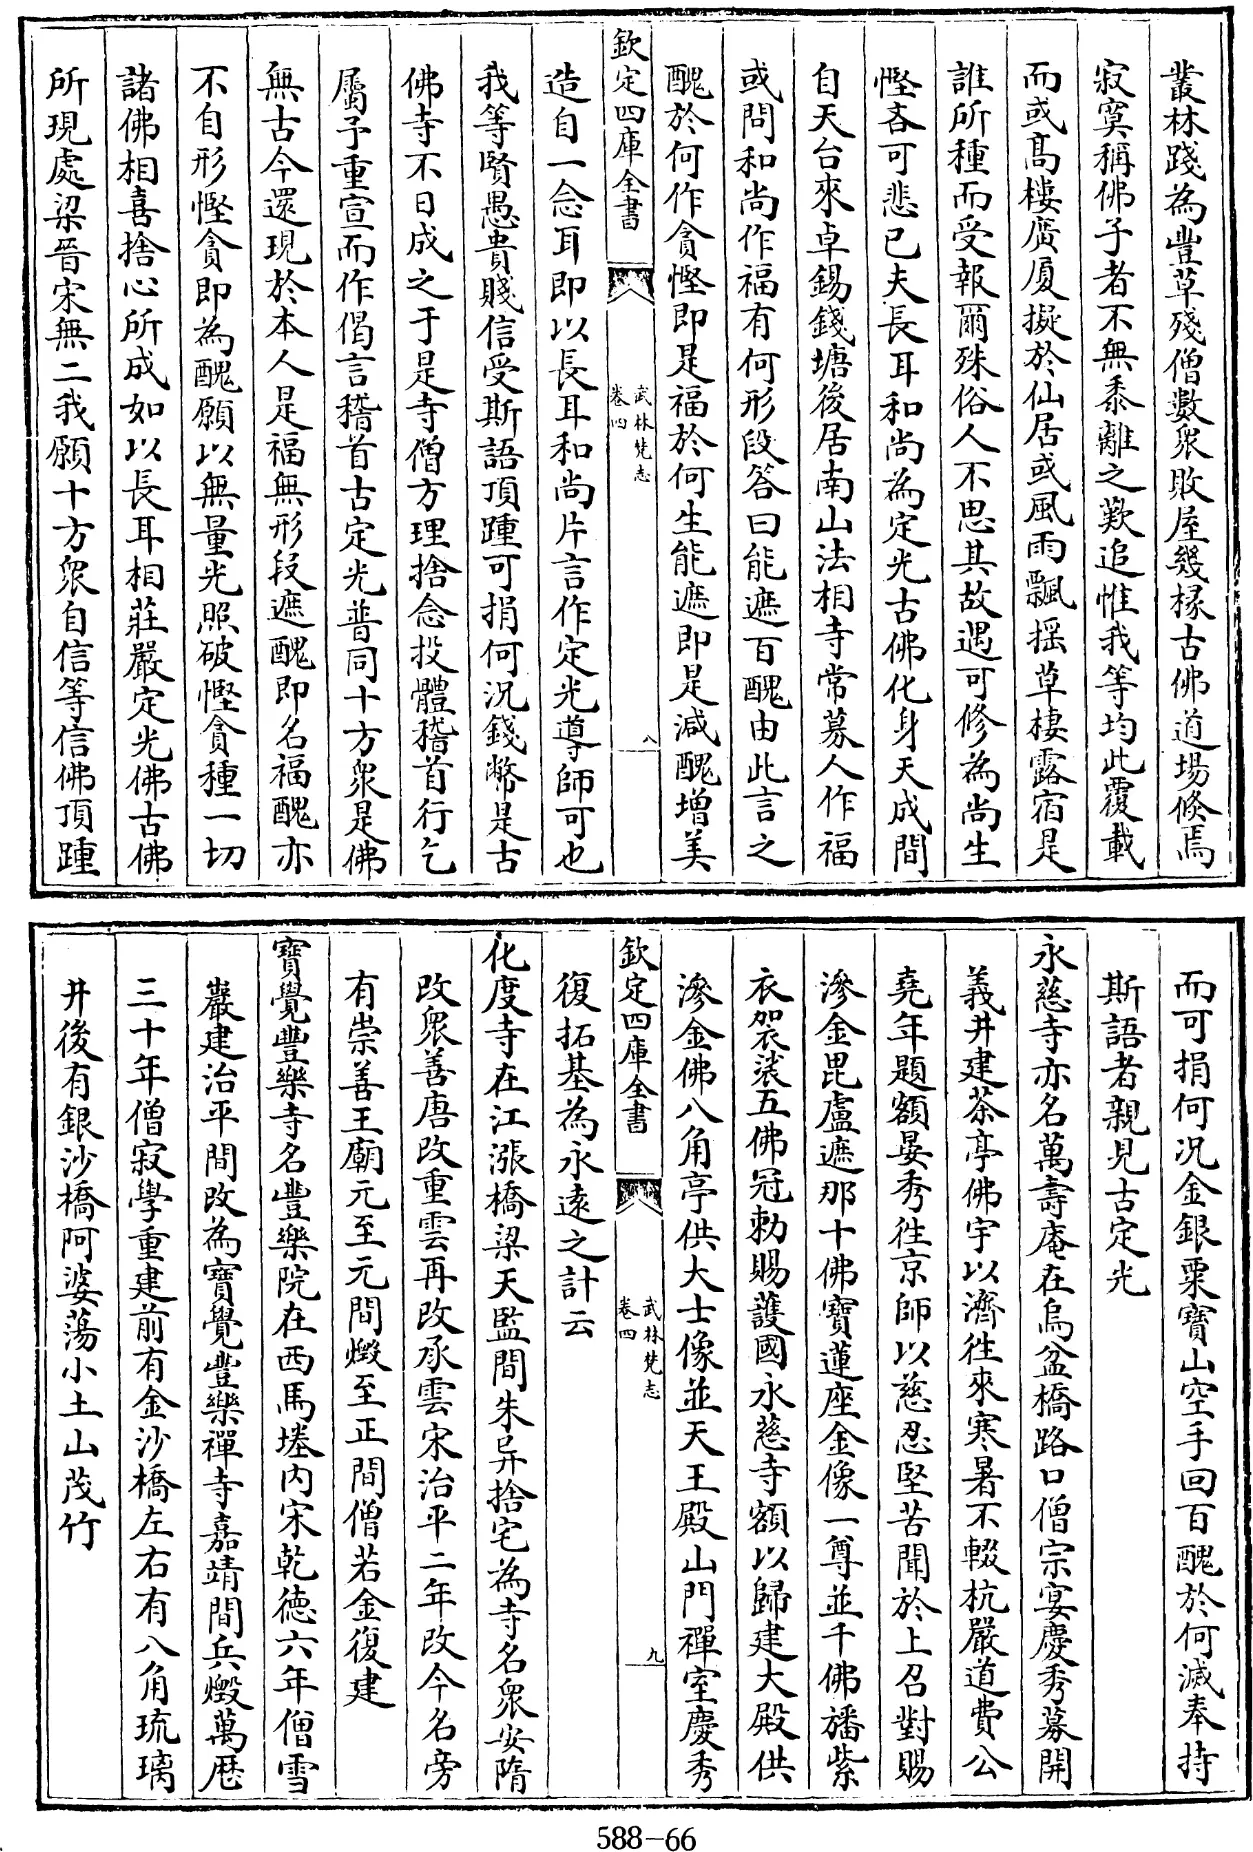 叢林踐為豐草殘僧數衆敗屋幾椽古佛道場倐焉
寂寞稱佛子者不無黍離之歎追惟我等均此覆載
而或髙樓廣厦擬於仙居或風雨飄揺草棲露宿是
誰所種而受報爾殊俗人不思其故遇可修為尚生
慳吝可悲已夫長耳和尚為定光古佛化身天成間
自天台來卓錫錢塘後居南山法相寺常募人作福
或問和尚作福有何形段答曰能遮百醜由此言之
醜於何作貪慳即是福於何生能遮即是減醜增美
欽定四庫全書
武林梵志
卷四
八
造自一念耳即以長耳和尚片言作定光導師可也
我等賢愚貴賤信受斯語頂踵可捐何況錢幣是古
佛寺不日成之于是寺僧方理捨念投體稽首行乞
屬予重宣而作偈言稽首古定光普同十方衆是佛
無古今還現於本人是福無形段遮醜即名福醜亦
不自形慳貪即為醜願以無量光照破慳貪種一切
諸佛相喜捨心所成如以長耳相莊嚴定光佛古佛
所現處梁晉宋無二我願十方衆自信等信佛頂踵
而可捐何况金銀粟寳山空手回百醜於何滅奉持
斯語者親見古定光
永慈寺亦名萬壽庵在烏盆橋路口僧宗宴慶秀募開
義井建茶亭佛宇以濟徃來寒暑不輟杭嚴道費公
堯年題額晏秀徃京師以慈忍堅苦聞於上召對賜
滲金毘盧遮那十佛寳蓮座金像一尊並千佛旛紫
衣袈裟五佛冠勅賜護國永慈寺額以歸建大殿供
滲金佛八角亭供大士像並天王殿山門禪室慶秀
欽定四庫全書
武林梵志
卷四
九
復拓基為永逺之計云
化度寺在江漲橋梁天監間朱异捨宅為寺名衆安隋
改衆善唐改重雲再改承雲宋治平二年改今名旁
有崇善王廟元至元間燬至正間僧若金復建
寳覺豐樂寺名豐樂院在西馬塍内宋乾徳六年僧雪
巖建治平間改為寳覺豐樂禪寺嘉靖間兵燬萬厯
三十年僧寂學重建前有金沙橋左右有八角琉璃
井後有銀沙橋阿婆蕩小土山茂竹
588-66